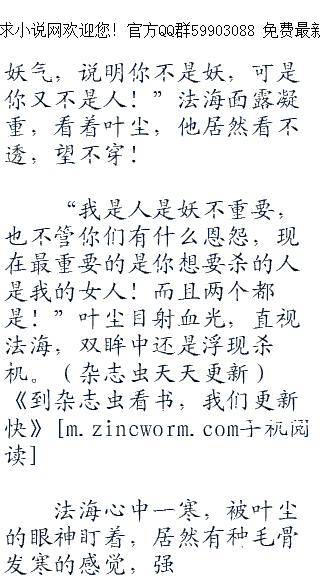 求小说网欢迎您！官方QQ群59903088 免费最新
妖气，说明你不是妖，可是
你又不是人！”法海面露凝
重，看着叶尘，他居然看不
透，望不穿！
“我是人是妖不重要，
也不管你们有什么恩怨，现
在最重要的是你想要杀的人
是我的女人！而且两个都
是！”叶尘目射血光，直视
法海，双眸中还是浮现杀
机。（杂志虫天天更新）
《到杂志虫看书，我们更新
快》[m.zincworm.com手机阅
读]
法海心中一寒，被叶尘
的眼神盯着，居然有种毛骨
发寒的感觉，强